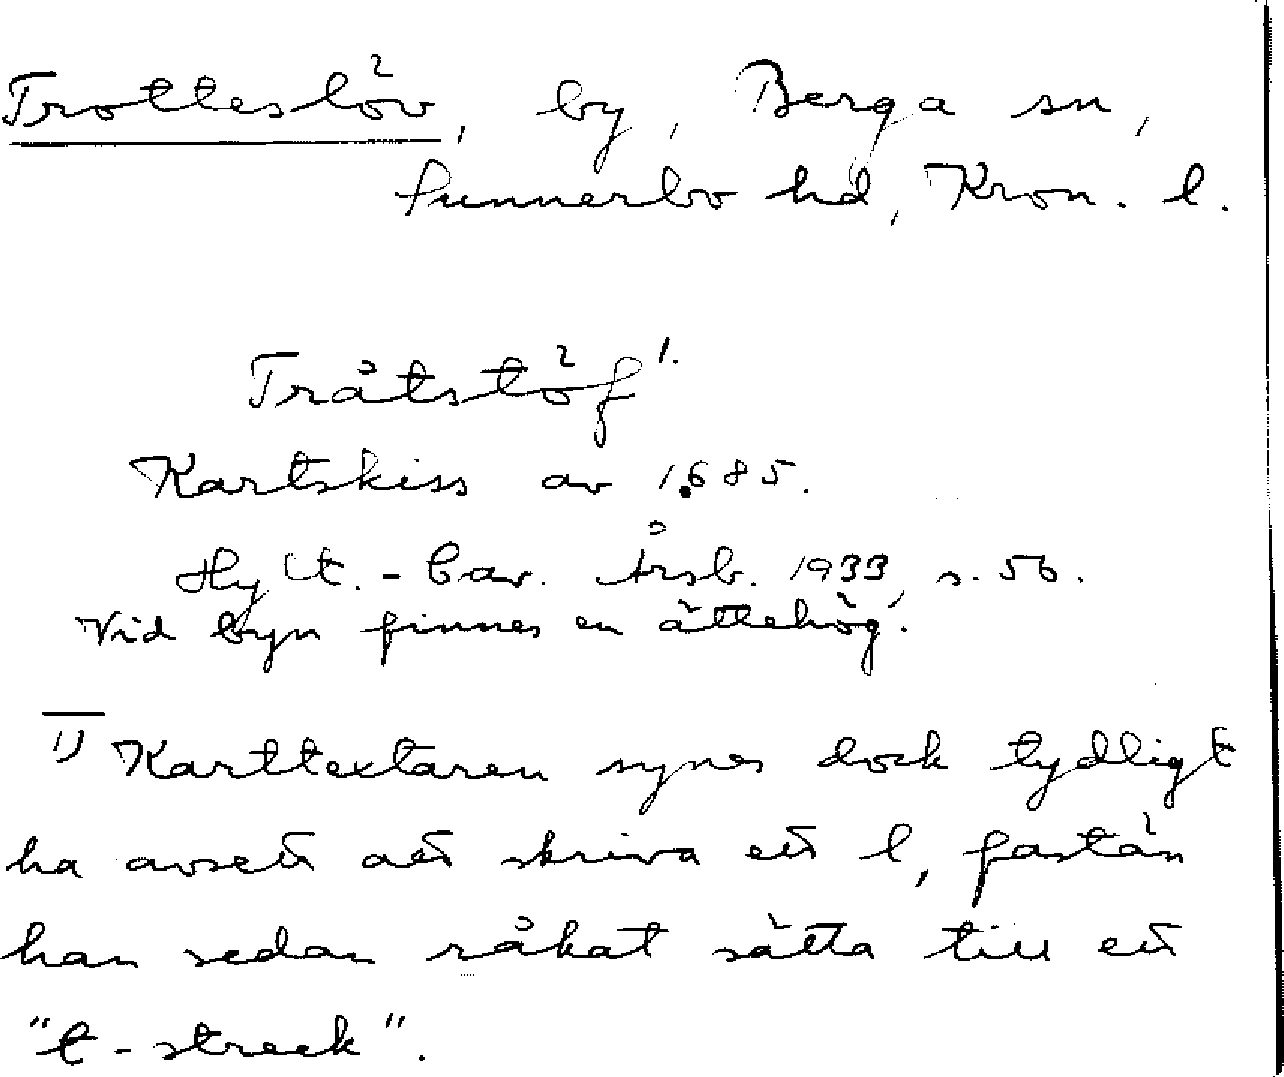 Trotteslöv, by, Berga sn,
Sunnerbo hd, Kron. l.
Tråtstöf 1.
Kartskiss av 1685.
Hylt.-Cav. Årsb. 1933, s. 56.
Vid byn finnes en ättehög.
1) Karttextaren synes dock tydligt
ha avsett att skriva ett l, fastän
han sedan råkat sätta till ett
"t-streck".